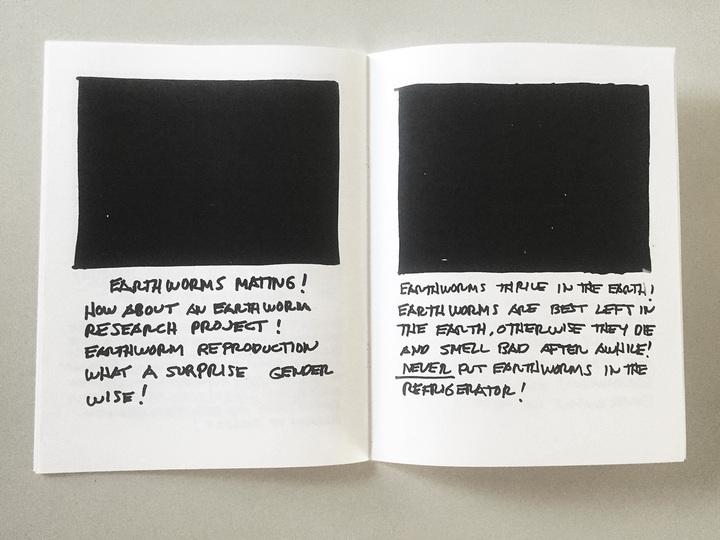 EARTHWORMS MATING!
HOW ABOUT AN EARTHWORM
RESEARCH PROJECT!
EARTHWORM REPRODUCTION
WHAT A SURPRISE GENDER
WISE!
EARTHWORMS THRIVE IN THE EARTH!
EARTHWORMS ARE BEST LEFT IN
THE EARTH, OTHERWISE THEY DIE
AND SMELL BAD AFTER AWHILE!
NEVER PUT EARTHWORMS IN THE
REFRIGERATOR!